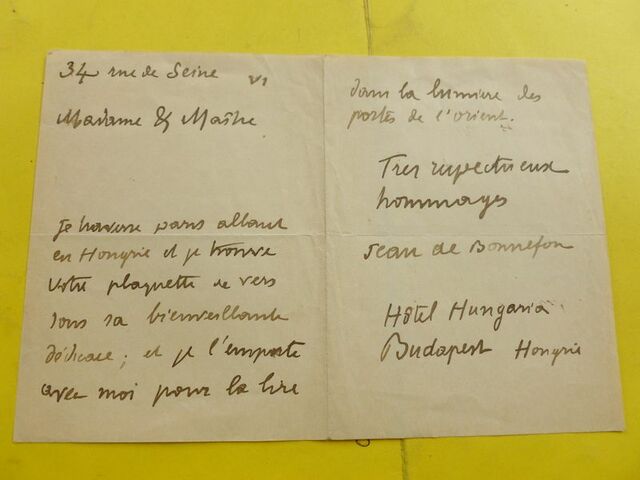 34 rue de Seine VI
Madame & Maître
je traverse paris allant
en Hongrie et je trouve
votre plaquette de vers
sous sa bienveillante
dédicace ; et je l'emporte
avec moi pour la lire
dans la lumière des
portes de l'orient.
Tres respectueux
hommages
Jean de Bonnefon
Hôtel Hungaria
Budapest Hongrie